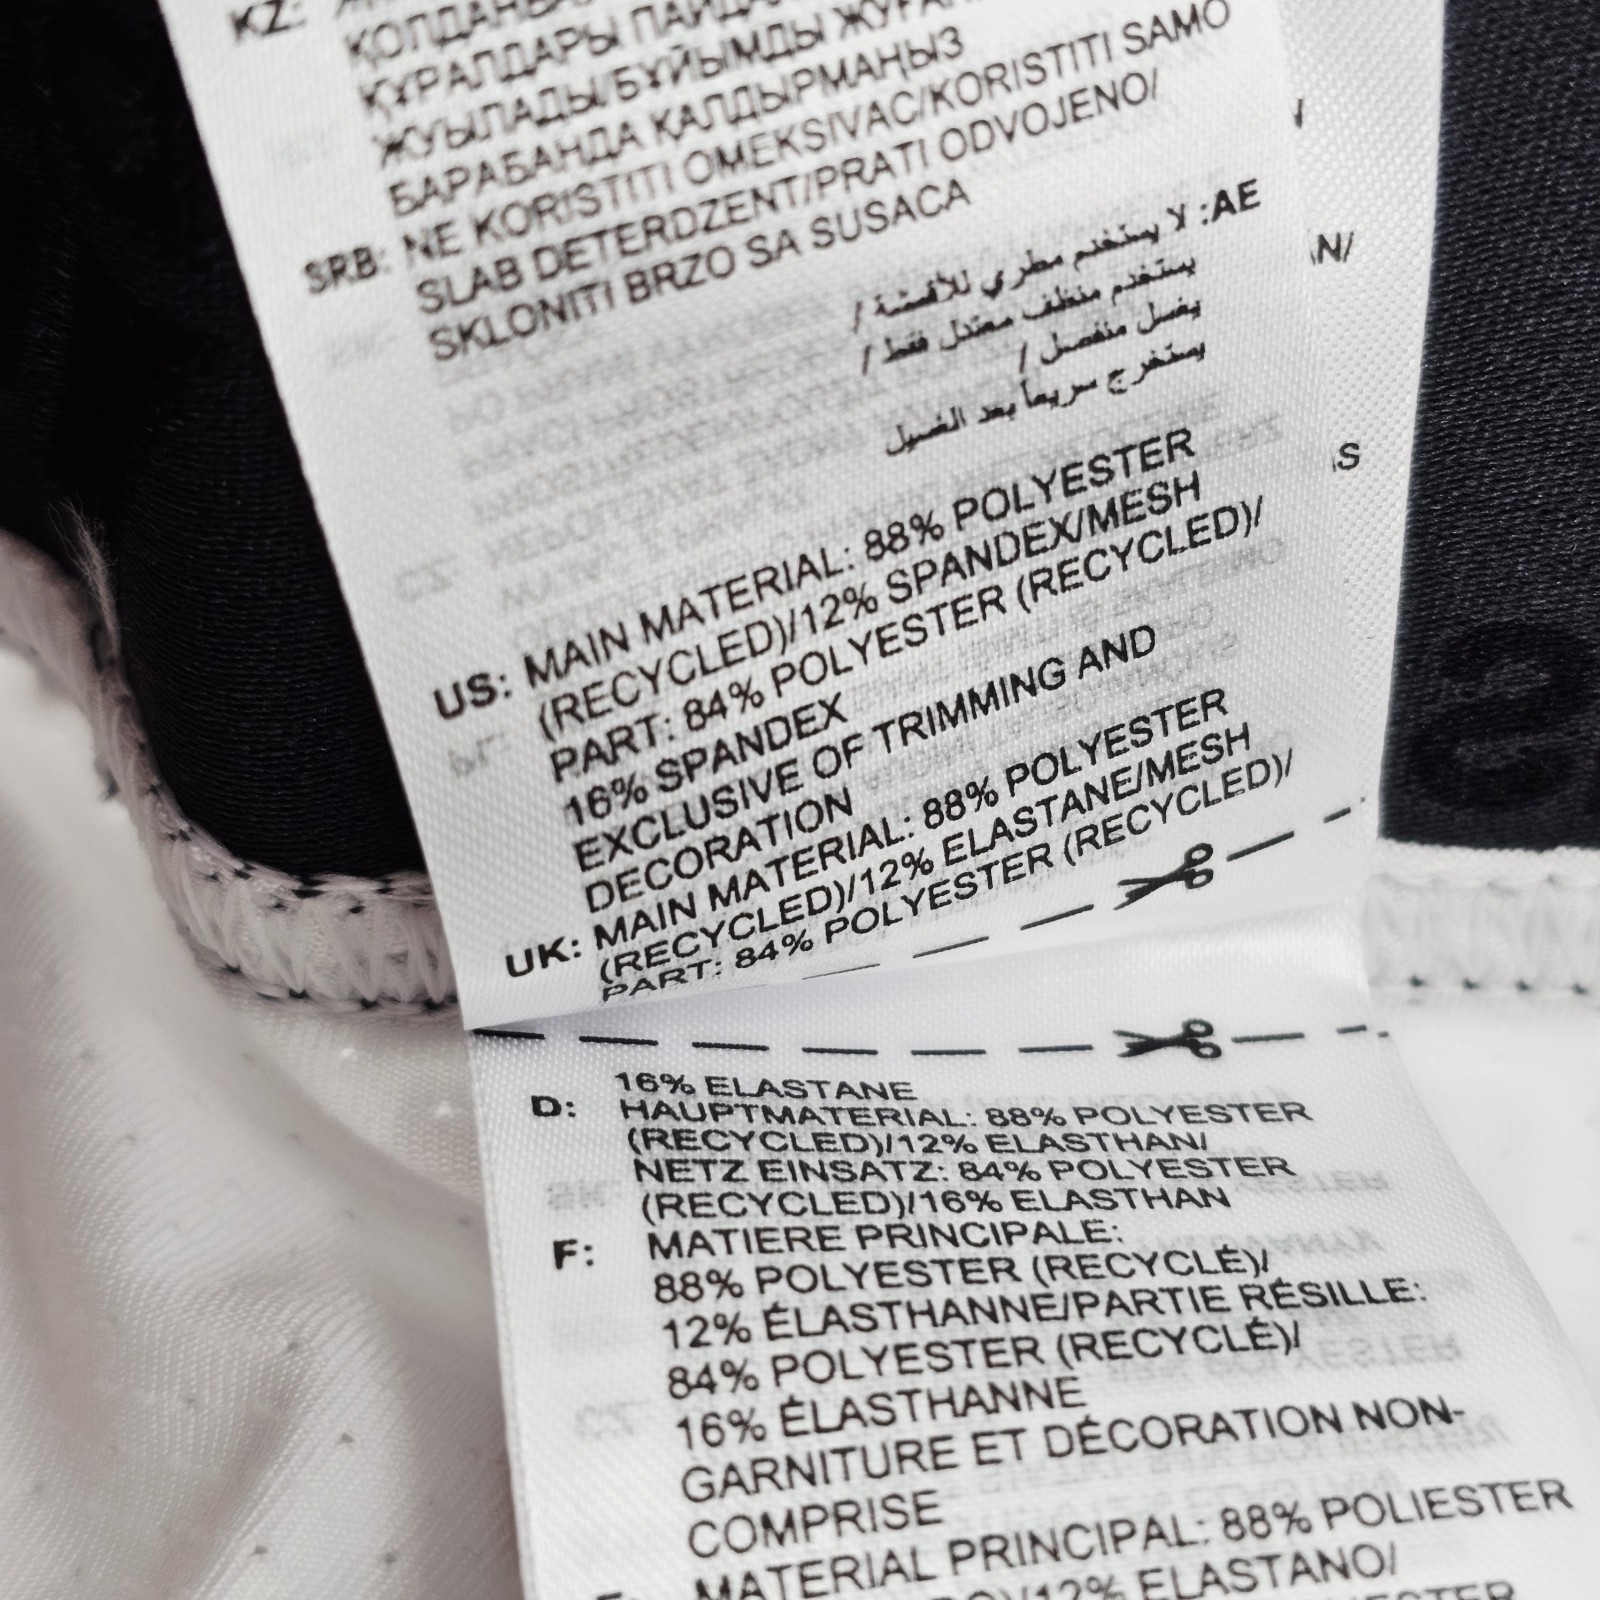 KZ:
ҚОЛДАНБА
ҚҰРАЛДАРЫ ПАЙДА
ЖУЫЛАДЫ/БҰЙЫМДЫ
БАРАБАНДА ҚАЛДЫРМАҢЫЗ
SRB: NE KORISTITI OMEKSIVAC/KORISTITI SAMO
SLAB DETERDZENT/PRATI ODVOJENO/
SKLONITI BRZO SA SUSACA
AE: لا يستخدم مطري للأقمشة /
يستخدم منظف معتدل فقط /
يغسل منفصل /
يستخرج سريعاً بعد الغسيل
N/
S
US: MAIN MATERIAL: 88% POLYESTER
(RECYCLED)/12% SPANDEX/MESH
PART: 84% POLYESTER (RECYCLED)/
16% SPANDEX
EXCLUSIVE OF TRIMMING AND
DECORATION
UK: MAIN MATERIAL: 88% POLYESTER
(RECYCLED)/12% ELASTANE/MESH
PART: 84% POLYESTER (RECYCLED)/
16% ELASTANE
D: HAUPTMATERIAL: 88% POLYESTER
(RECYCLED)/12% ELASTHAN/
NETZ EINSATZ: 84% POLYESTER
(RECYCLED)/16% ELASTHAN
F: MATIERE PRINCIPALE:
88% POLYESTER (RECYCLÉ)/
12% ÉLASTHANNE/PARTIE RÉSILLE:
84% POLYESTER (RECYCLÉ)/
16% ÉLASTHANNE
GARNITURE ET DÉCORATION NON-
COMPRISE
MATERIAL PRINCIPAL: 88% POLIESTER
12% ELASTANO/